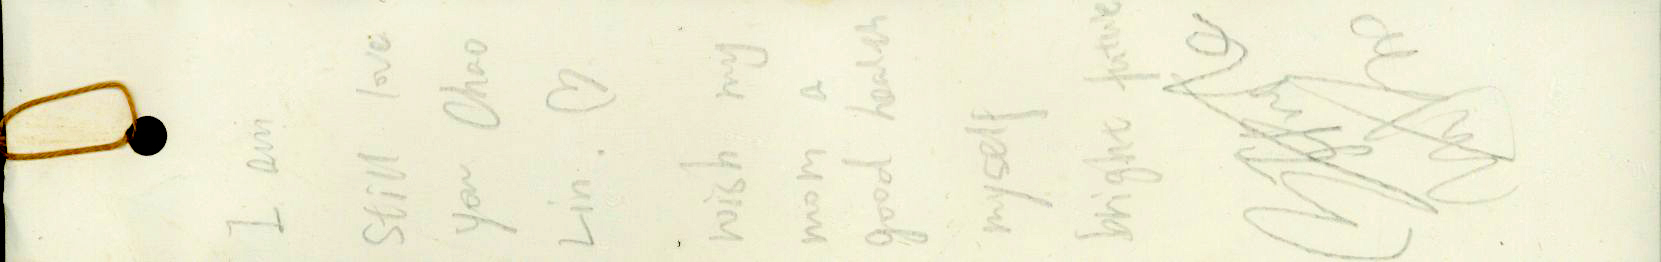 I am
Still love
you Chao
Lin. ♡
wish my
mom a
good health
myself
bright future